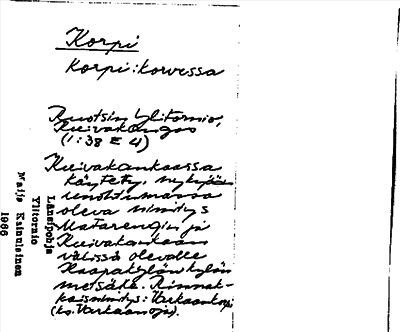 Korpi
Korpi : korvessa
Ruotsin Ylitornio,
Kuivakangas
(1:38 E 4)
Kuivakankaassa
käytetty, nykyään
unohtumassa
oleva nimitys
Matarengin ja
Kuivakankaan
välissä olevalle
Haapakylän kylän
metsälle. Rinnak-
kaisnimitys: Varkaankorpi
(ks. Varkaanoja).
Länsipohja
Ylitornio
Maija Kainulainen
1966